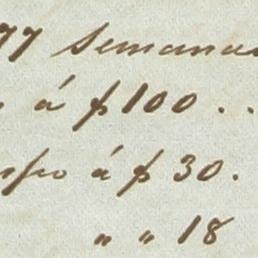 77 Semanas
á $100 . .
á $ 30 .
" " 18